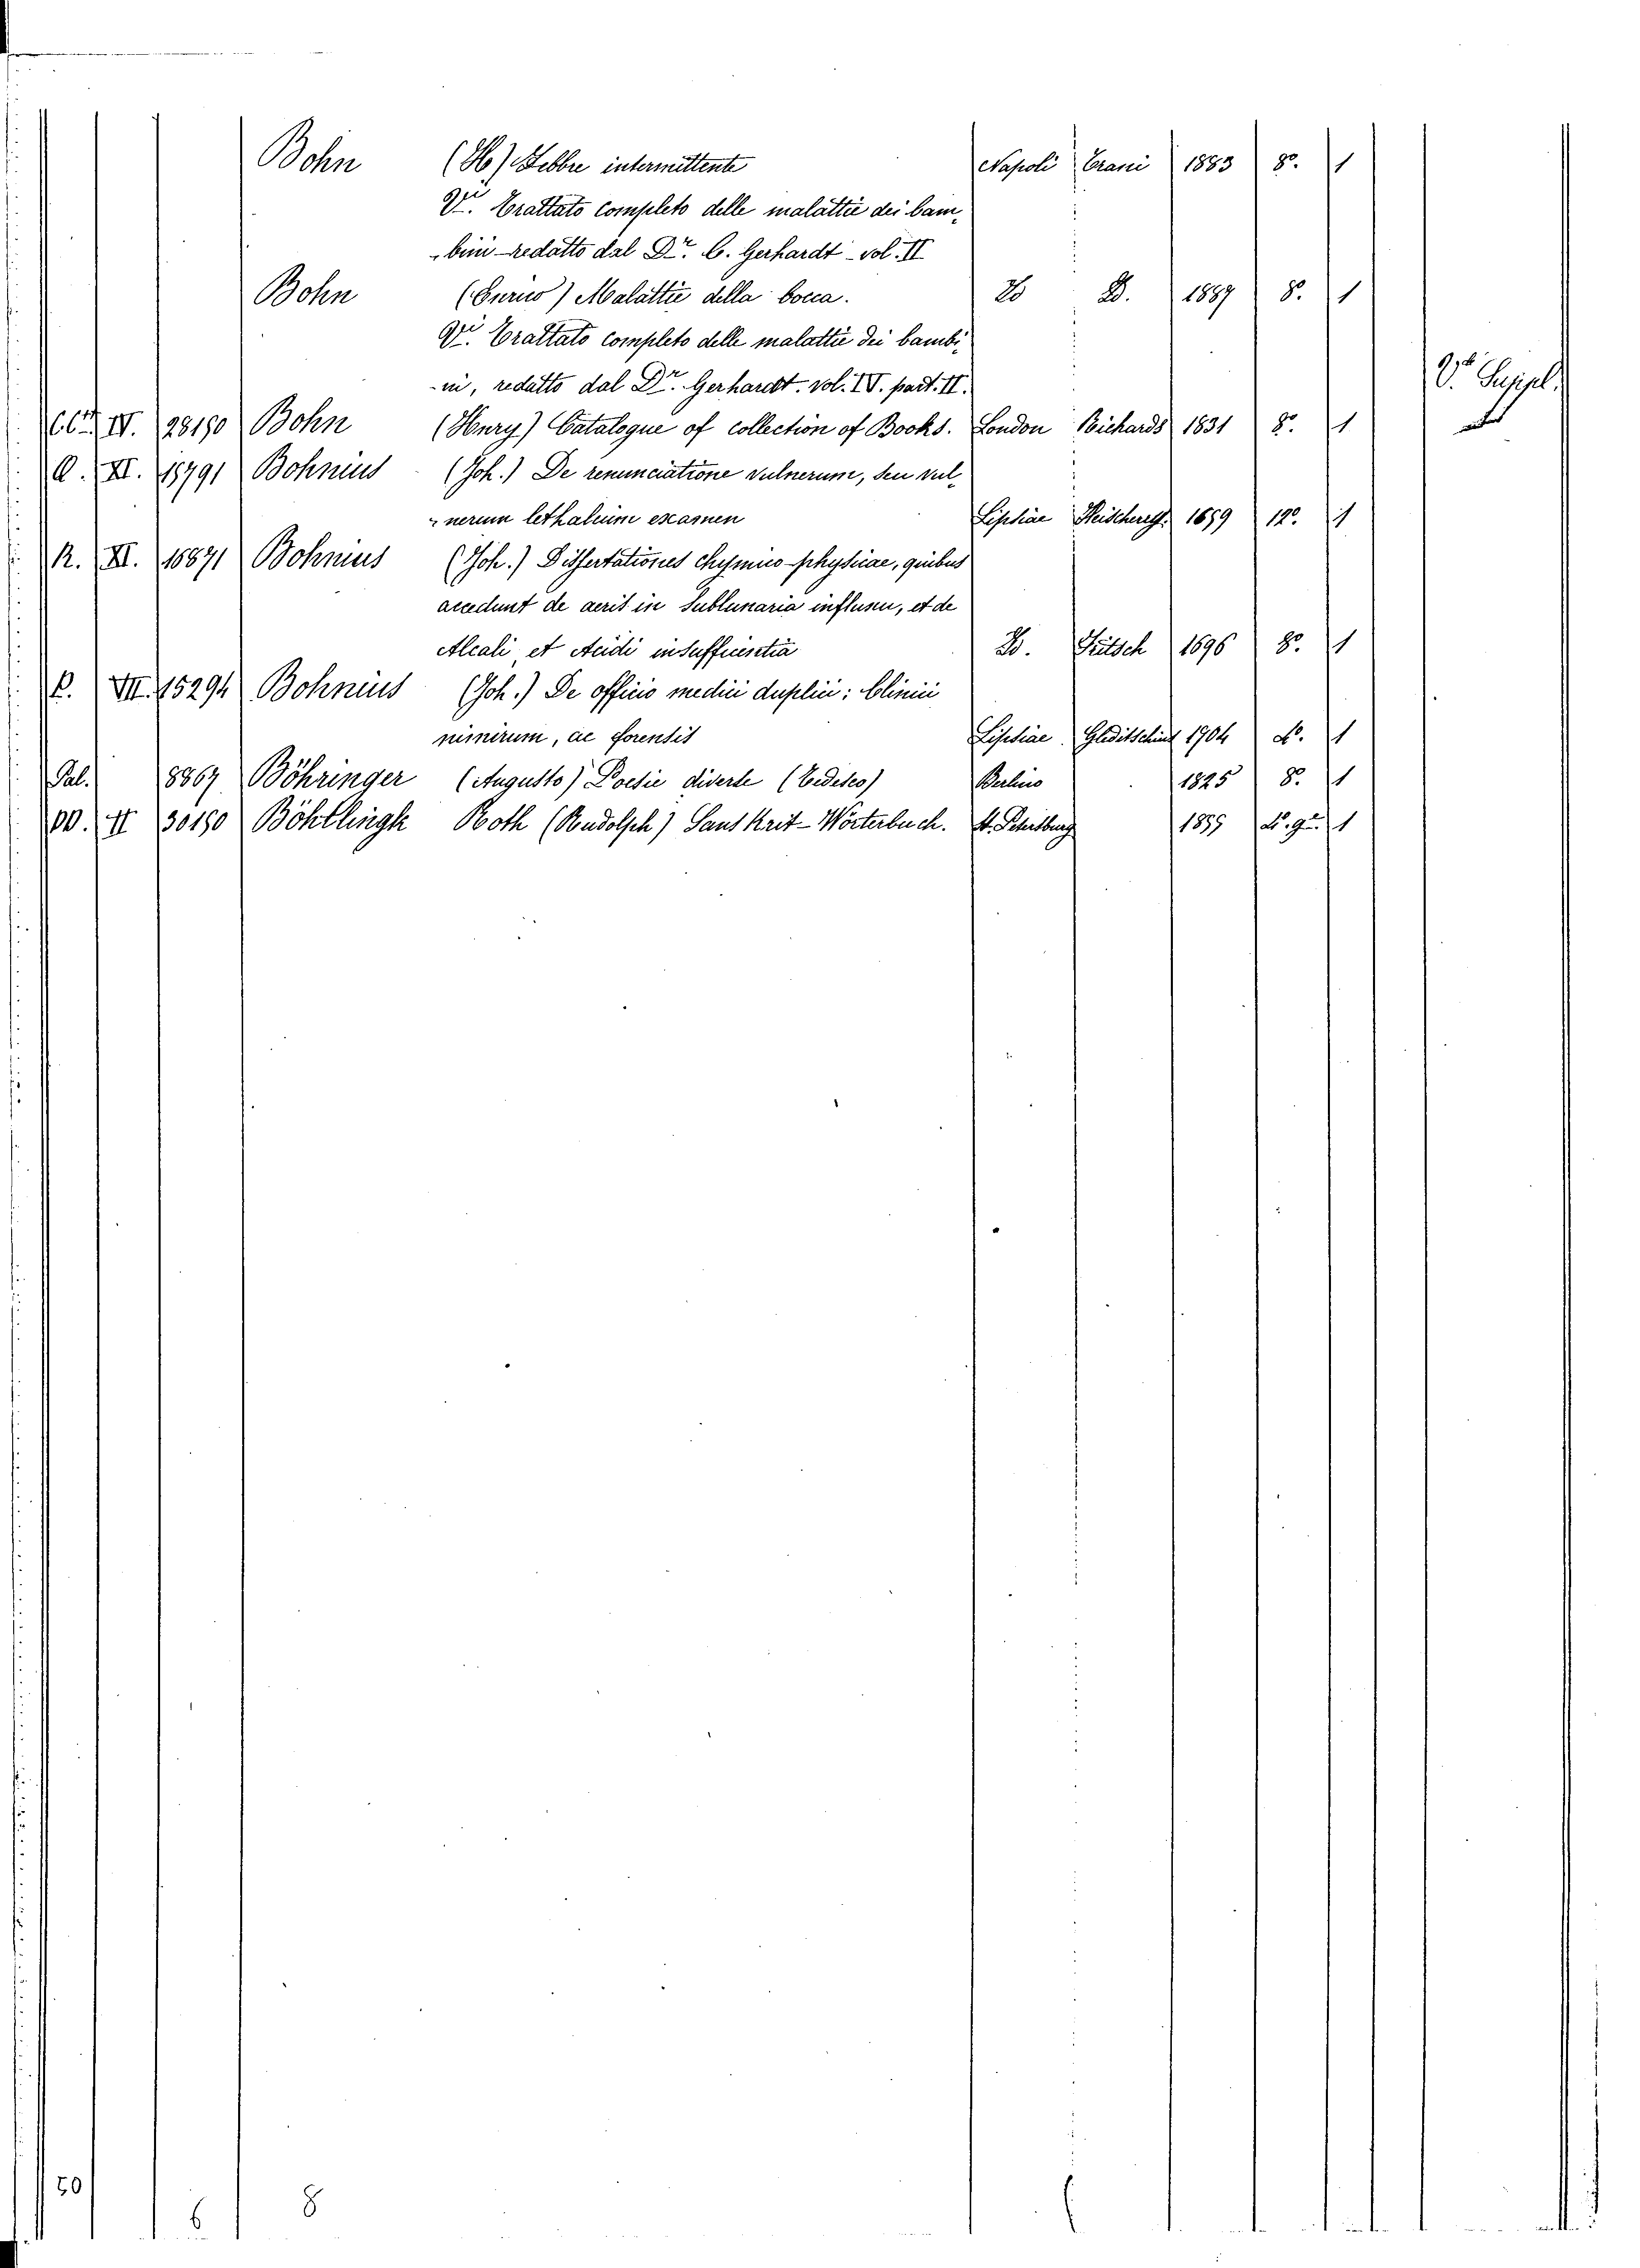 Bohn (H.) Febbre intermittente Napoli Trani 1883 8º. 1
Vi. Trattato completo delle malattie dei bam-
bini redatto dal Dr. C. Gerhardt - vol. II
Bohn (Enrico) Malattie della bocca. D D. 1887 8º. 1
Vi. Trattato completo delle malattie dei bambi-
ni, redatto dal Dr. Gerhardt. vol. IV. part. II.
Vi. Suppl.
IV. 28190 Bohn (Henry) Catalogue of collection of Books. London Richards 1831 8º. 1
Q. XI. 18791 Bohnius (Joh.) De renunciatione vulnerum, seu vul-
nerum lethalium examen Lipsiae 12º. 1
R. XI. 10871 Bohnius (Joh.) Dissertationes chymico-physicae, quibus
accedunt de aeris in sublunaria influxu, et de
Alcali et Acidi insufficientia D. Fritsch 1696 8º. 1
P. VII. 15294 Bohnius (Joh.) De officio medici duplici: Clinici
nimirum, ac forensis Lipsiae Gleditschius 1704 4º. 1
Pal. 8867 Böhringer (Augusto) Poesie diverse (Tedesco) Berlino 1825 8º. 1
II 30190 Böhtlingk Roth (Rudolph) Sanskrit-Wörterbuch. St. Petersburg 1855 4º. gr. 1
50
6
8